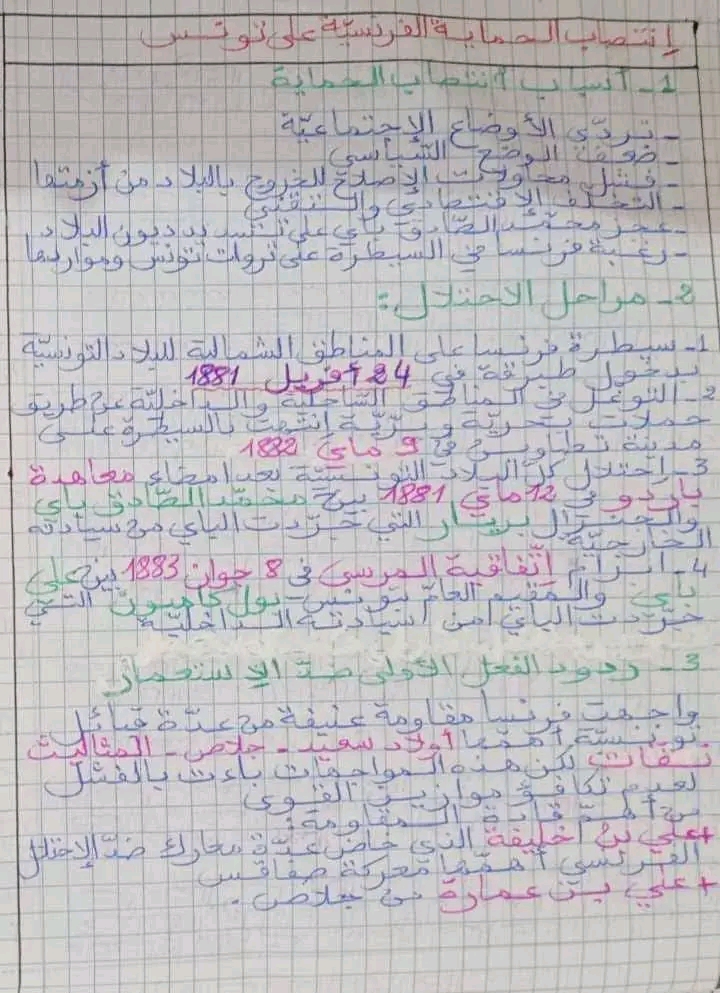 إنتصاب الحماية الفرنسيّة على تونس
1- أسباب انتصاب الحماية
- تردّي الأوضاع الإجتماعيّة
- ضعف الوضع السّياسي
- فشل محاولات الإصلاح للخروج بالبلاد من أزمتها
- التخلّف الاقتصادي والتقني
- عجز محمّد الصّادق باي على تسديد ديون البلاد
- رغبة فرنسا في السيطرة على ثروات تونس ومواردها
2- مراحل الاحتلال:
1- سيطرة فرنسا على المناطق الشمالية للبلاد التونسيّة
بدخول طبرقة في 24 أفريل 1881
2- التوغّل في المناطق السّاحليّة والدّاخليّة عن طريق
حملات بحريّة وبرّيّة إنتهت بالسيطرة على
مدينة تطاوين في 9 ماي 1882
3- إحتلال كلّ البلاد التونسيّة بعد امضاء معاهدة
باردو في 12 ماي 1881 بين محمّد الصّادق باي
والجنرال بريار التي جرّدت الباي من سيادته
الخارجيّة
4- ابرام إتّفاقية المرسى في 8 جوان 1883 بين علي
باي والمقيم العامّ بتونس بول كامبون التي
جرّدت الباي من سيادته الدّاخليّة
3- ردود الفعل الأولى ضدّ الإستعمار
واجهت فرنسا مقاومة عنيفة من عدّة قبائل
تونسيّة أهمّها أولاد سعيد - جلاص - المثاليث
نفّات لكن هذه المواجهات باءت بالفشل
لعدم تكافؤ موازين القوى
من أهمّ قادة المقاومة:
+ علي بن خليفة الذي خاض عدّة معارك ضدّ الإحتلال
الفرنسي أهمّها معركة صفاقس
+ علي بن عمارة من جلاص.